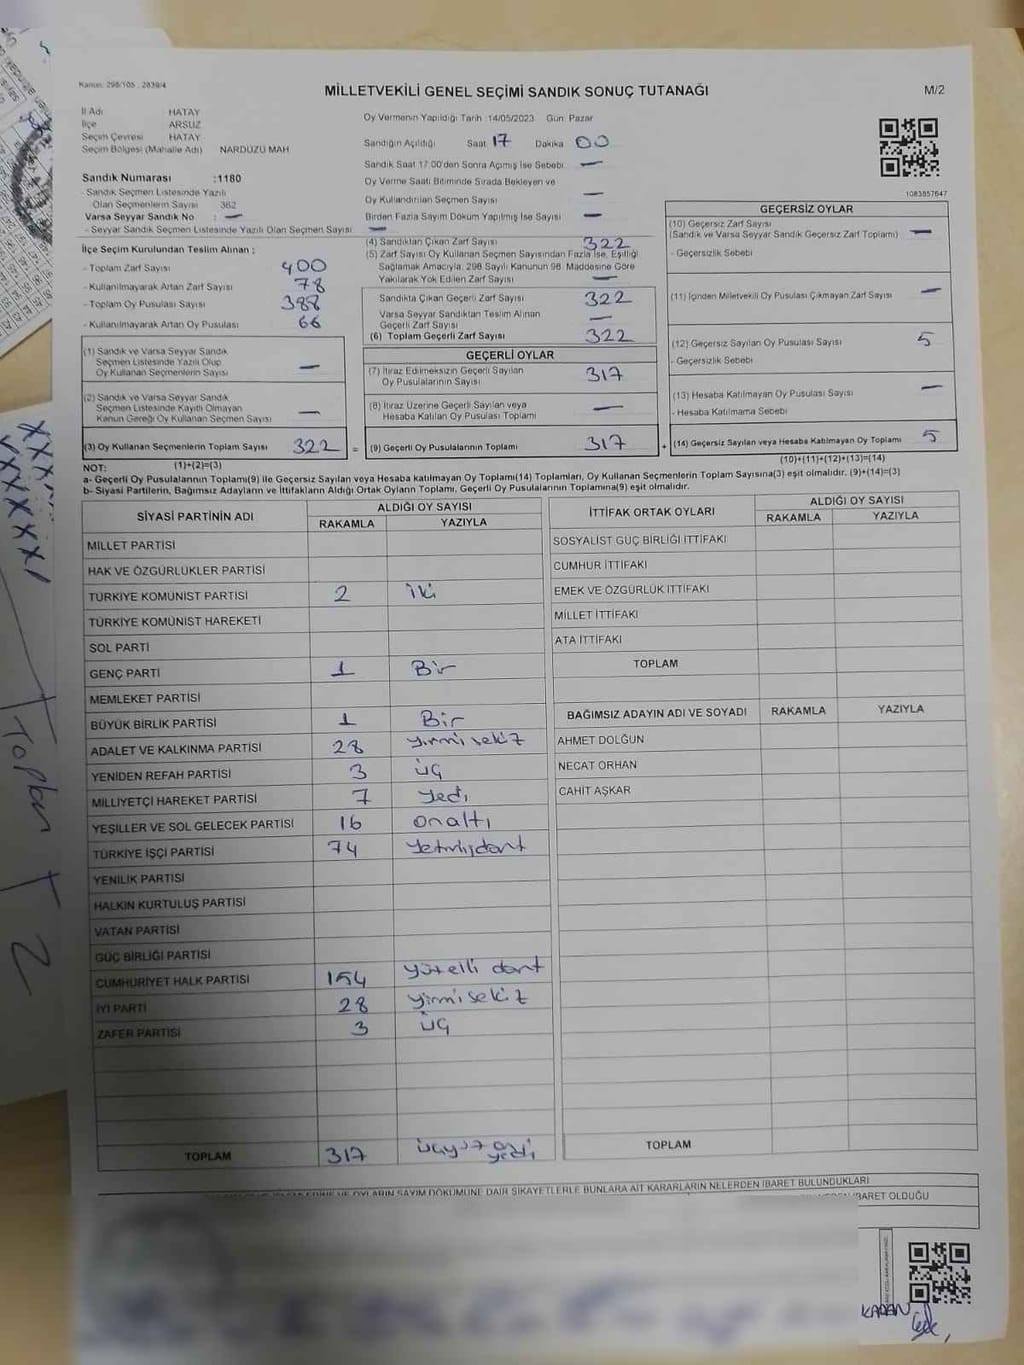 Kanun: 298/105 , 2839/4
MİLLETVEKİLİ GENEL SEÇİMİ SANDIK SONUÇ TUTANAĞI
M/2
İl Adı HATAY
İlçe ARSUZ
Seçim Çevresi HATAY
Seçim Bölgesi (Mahalle Adı) NARDÜZÜ MAH
Sandık Numarası :1180
- Sandık Seçmen Listesinde Yazılı
Olan Seçmenlerin Sayısı 362
Varsa Seyyar Sandık No : —
- Seyyar Sandık Seçmen Listesinde Yazılı Olan Seçmen Sayısı —
Oy Vermenin Yapıldığı Tarih :14/05/2023 Gün: Pazar
Sandığın Açıldığı Saat 17 Dakika 00
Sandık Saat 17:00'den Sonra Açılmış İse Sebebi —
Oy Verme Saati Bitiminde Sırada Bekleyen ve
Oy Kullandırılan Seçmen Sayısı —
Birden Fazla Sayım Döküm Yapılmış İse Sayısı —
1083857647
İlçe Seçim Kurulundan Teslim Alınan ;
- Toplam Zarf Sayısı 400
- Kullanılmayarak Artan Zarf Sayısı 78
- Toplam Oy Pusulası Sayısı 388
- Kullanılmayarak Artan Oy Pusulası 66
(1) Sandık ve Varsa Seyyar Sandık
Seçmen Listesinde Yazılı Olup
Oy Kullanan Seçmenlerin Sayısı —
(2) Sandık ve Varsa Seyyar Sandık
Seçmen Listesinde Kayıtlı Olmayan
Kanun Gereği Oy Kullanan Seçmen Sayısı —
(3) Oy Kullanan Seçmenlerin Toplam Sayısı 322 =
(4) Sandıktan Çıkan Zarf Sayısı 322
(5) Zarf Sayısı Oy Kullanan Seçmen Sayısından Fazla İse, Eşitliği
Sağlamak Amacıyla, 298 Sayılı Kanunun 98. Maddesine Göre
Yakılarak Yok Edilen Zarf Sayısı —
Sandıkta Çıkan Geçerli Zarf Sayısı 322
Varsa Seyyar Sandıktan Teslim Alınan
Geçerli Zarf Sayısı —
(6) Toplam Geçerli Zarf Sayısı 322
GEÇERLİ OYLAR
(7) İtiraz Edilmeksizin Geçerli Sayılan
Oy Pusulalarının Sayısı 317
(8) İtiraz Üzerine Geçerli Sayılan veya
Hesaba Katılan Oy Pusulası Toplamı —
(9) Geçerli Oy Pusulalarının Toplamı 317 +
GEÇERSİZ OYLAR
(10) Geçersiz Zarf Sayısı
(Sandık ve Varsa Seyyar Sandık Geçersiz Zarf Toplamı) —
- Geçersizlik Sebebi
(11) İçinden Milletvekili Oy Pusulası Çıkmayan Zarf Sayısı —
(12) Geçersiz Sayılan Oy Pusulası Sayısı 5
- Geçersizlik Sebebi
(13) Hesaba Katılmayan Oy Pusulası Sayısı —
- Hesaba Katılmama Sebebi
(14) Geçersiz Sayılan veya Hesaba Katılmayan Oy Toplamı 5
NOT: (1)+(2)=(3)
(10)+(11)+(12)+(13)=(14)
a- Geçerli Oy Pusulalarının Toplamı(9) ile Geçersiz Sayılan veya Hesaba katılmayan Oy Toplamı(14) Toplamları, Oy Kullanan Seçmenlerin Toplam Sayısına(3) eşit olmalıdır. (9)+(14)=(3)
b- Siyasi Partilerin, Bağımsız Adayların ve İttifakların Aldığı Ortak Oyların Toplamı, Geçerli Oy Pusulalarının Toplamına(9) eşit olmalıdır.
SİYASİ PARTİNİN ADI ALDIĞI OY SAYISI
RAKAMLA YAZIYLA
MİLLET PARTİSİ
HAK VE ÖZGÜRLÜKLER PARTİSİ
TÜRKİYE KOMÜNİST PARTİSİ 2 iki
TÜRKİYE KOMÜNİST HAREKETİ
SOL PARTİ
GENÇ PARTİ 1 Bir
MEMLEKET PARTİSİ
BÜYÜK BİRLİK PARTİSİ 1 Bir
ADALET VE KALKINMA PARTİSİ 28 yirmi sekiz
YENİDEN REFAH PARTİSİ 3 üç
MİLLİYETÇİ HAREKET PARTİSİ 7 yedi
YEŞİLLER VE SOL GELECEK PARTİSİ 16 onaltı
TÜRKİYE İŞÇİ PARTİSİ 74 yetmişdört
YENİLİK PARTİSİ
HALKIN KURTULUŞ PARTİSİ
VATAN PARTİSİ
GÜÇ BİRLİĞİ PARTİSİ
CUMHURİYET HALK PARTİSİ 154 yüzelli dört
İYİ PARTİ 28 yirmisekiz
ZAFER PARTİSİ 3 üç
TOPLAM 317 üçyüz onyedi
İTTİFAK ORTAK OYLARI ALDIĞI OY SAYISI
RAKAMLA YAZIYLA
SOSYALİST GÜÇ BİRLİĞİ İTTİFAKI
CUMHUR İTTİFAKI
EMEK VE ÖZGÜRLÜK İTTİFAKI
MİLLET İTTİFAKI
ATA İTTİFAKI
TOPLAM
BAĞIMSIZ ADAYIN ADI VE SOYADI RAKAMLA YAZIYLA
AHMET DOLĞUN
NECAT ORHAN
CAHİT AŞKAR
TOPLAM
OYLARIN SAYIM DÖKÜMÜNE DAİR ŞİKAYETLERLE BUNLARA AİT KARARLARIN NELERDEN İBARET BULUNDUKLARI
İBARET OLDUĞU
Toplam
2